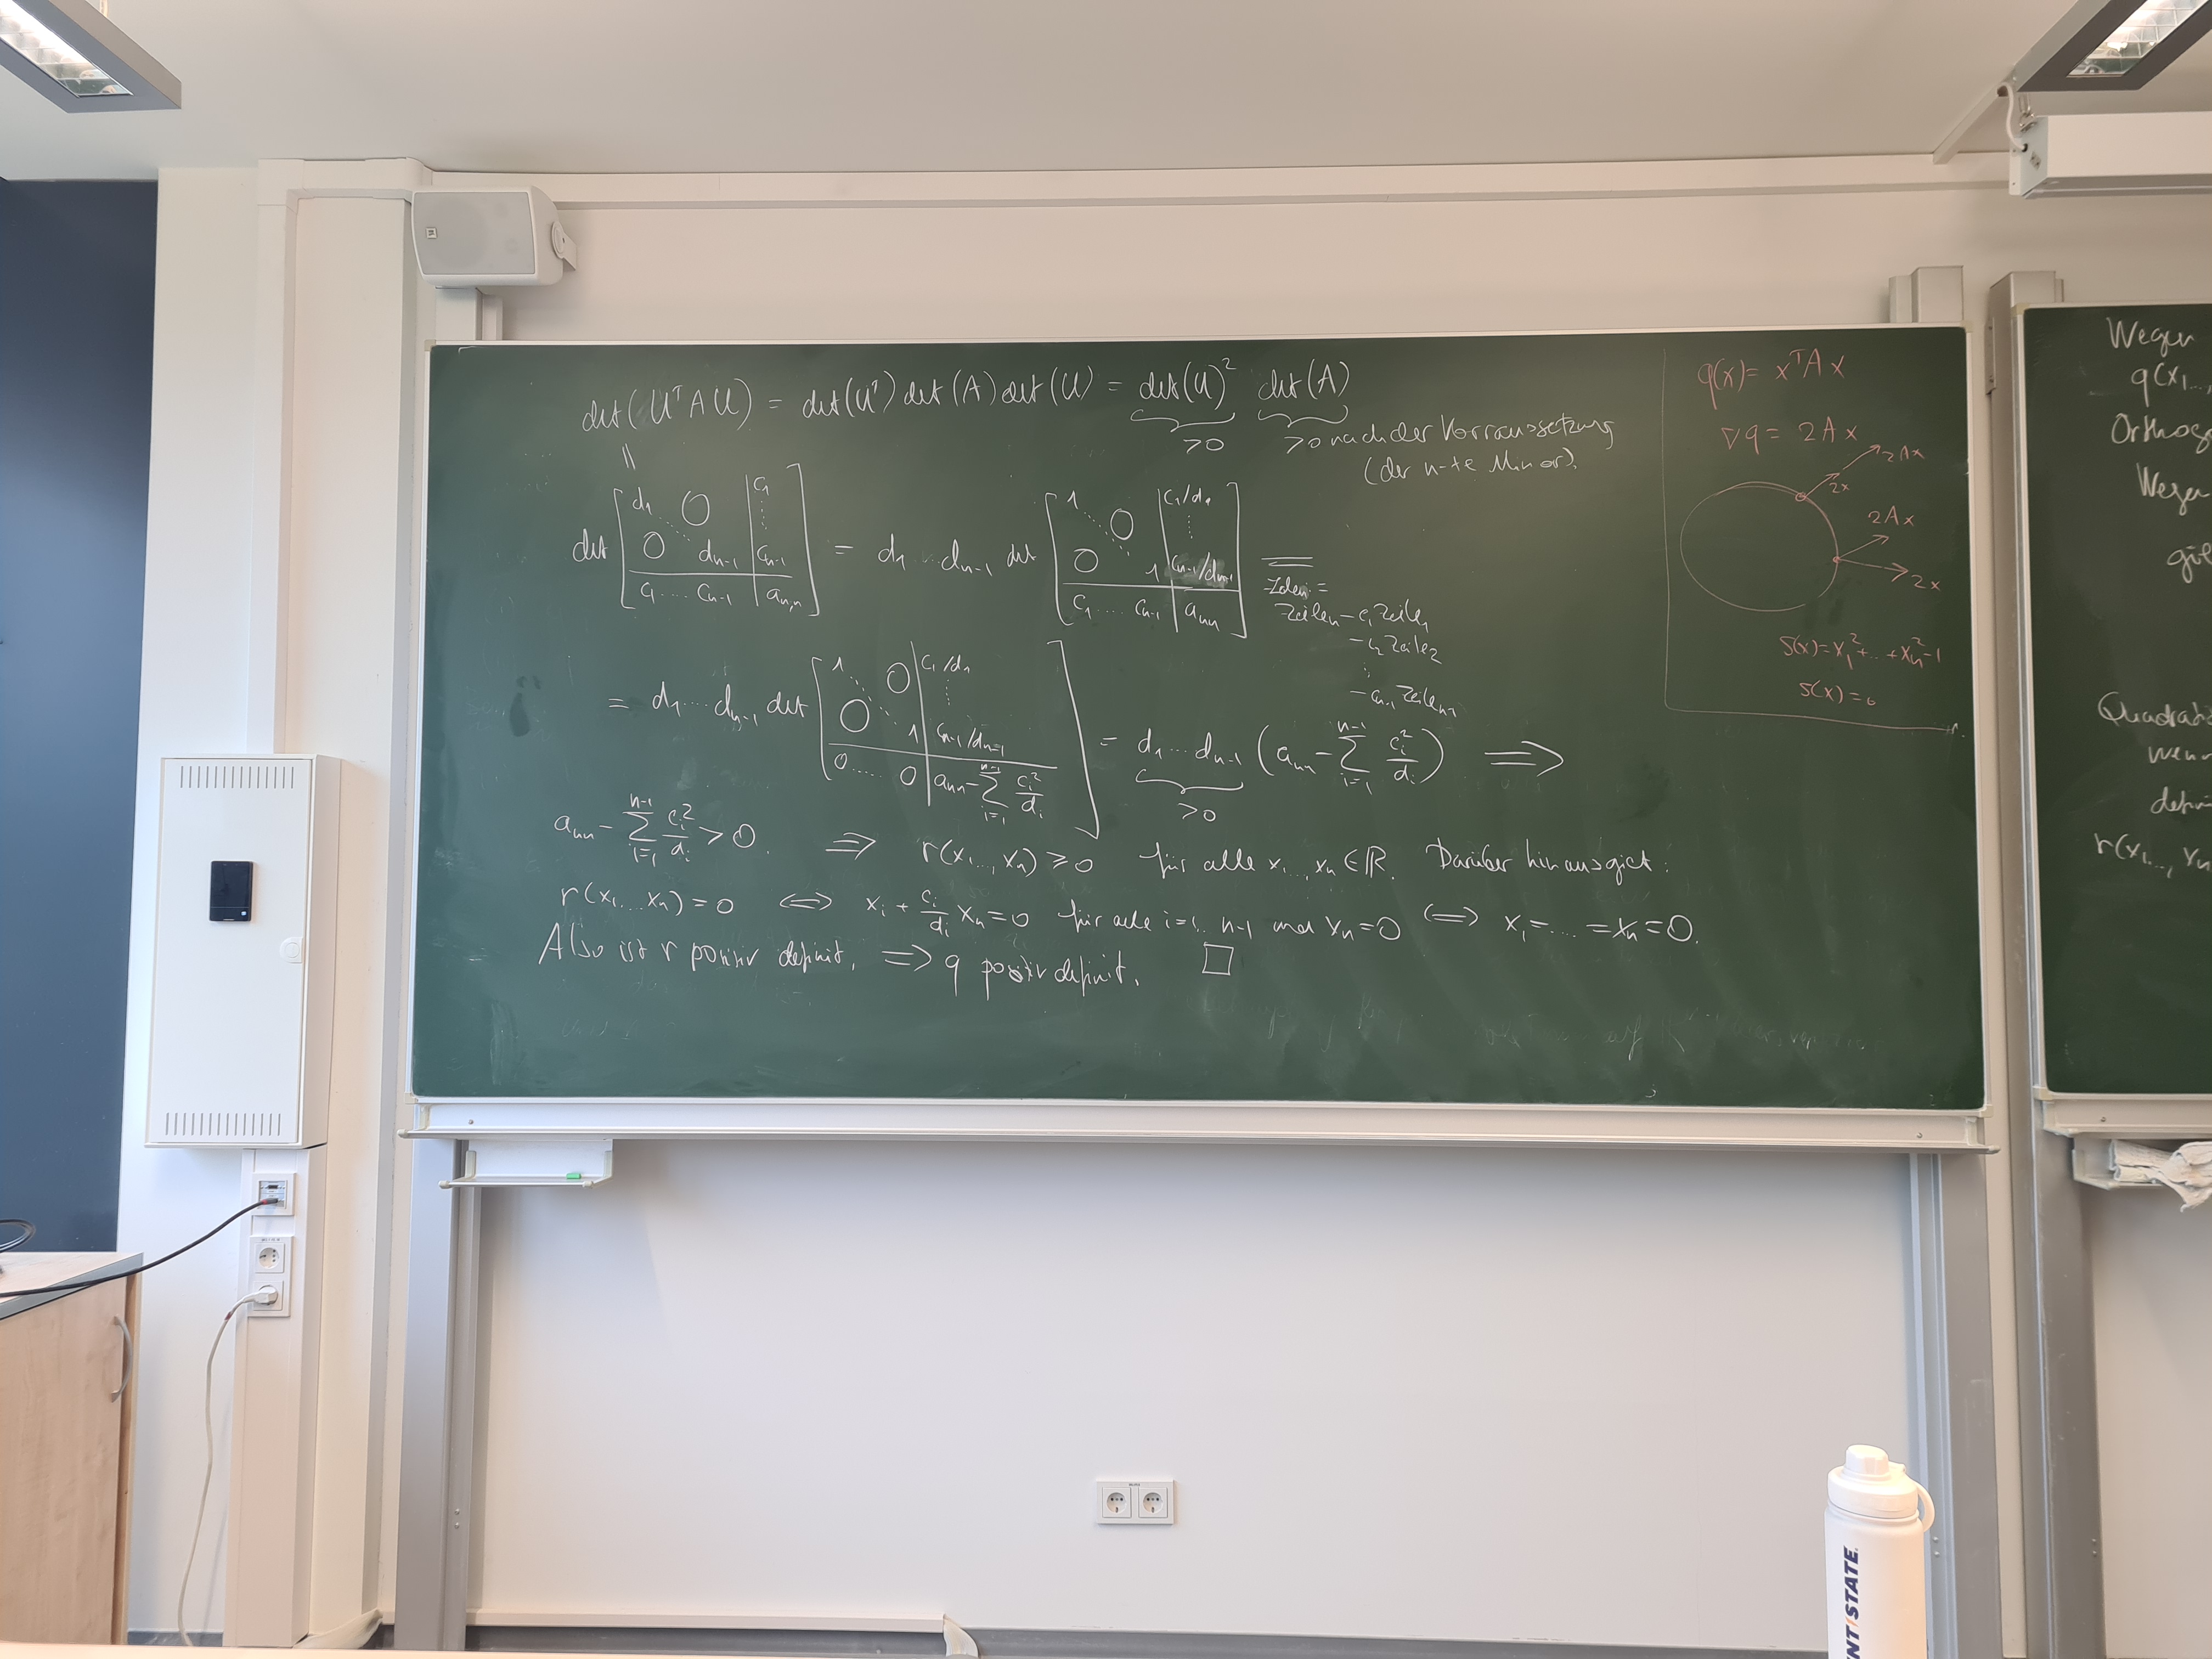 det(UᵀAU) = det(Uᵀ) det(A) det(U) = det(U)² det(A)
>0 >0 nach der Vorraussetzung
(der n-te Minor).
||
det [ d₁ 0 | c₁ ; 0 dₙ₋₁ | cₙ₋₁ ; c₁ .... cₙ₋₁ | aₙ,ₙ ] = d₁ ... dₙ₋₁ det [ 1 0 | c₁/d₁ ; 0 1 | cₙ₋₁/dₙ₋₁ ; c₁ .... cₙ₋₁ | aₙₙ ] =
Zeileₙ :=
Zeileₙ − c₁ Zeile₁
− c₂ Zeile₂
⋮
− cₙ₋₁ Zeileₙ₋₁
= d₁ ... dₙ₋₁ det [ 1 0 | c₁/d₁ ; 0 1 | cₙ₋₁/dₙ₋₁ ; 0 ..... 0 | aₙₙ − ∑ᵢ₌₁ⁿ⁻¹ cᵢ²/dᵢ ] = d₁ ... dₙ₋₁ (aₙₙ − ∑ᵢ₌₁ⁿ⁻¹ cᵢ²/dᵢ) ⟹
>0
aₙₙ − ∑ᵢ₌₁ⁿ⁻¹ cᵢ²/dᵢ > 0. ⟹ r(x₁..., xₙ) ≥ 0 für alle x₁..., xₙ ∈ ℝ. Darüber hinaus gilt:
r(x₁...xₙ) = 0 ⟺ xᵢ + cᵢ/dᵢ xₙ = 0 für alle i=1.. n-1 und xₙ = 0 ⟺ x₁ = ... = xₙ = 0.
Also ist r positiv definit. ⟹ q positiv definit. □
q(x) = xᵀAx
∇q = 2Ax
2Ax
2x
2Ax
2x
s(x) = x₁² + ... + xₙ² − 1
s(x) = 0
Wegen
q(x₁...,
Orthog
Wegen
gil
Quadrat
wenn
defin
r(x₁..., xₙ
NT/STATE